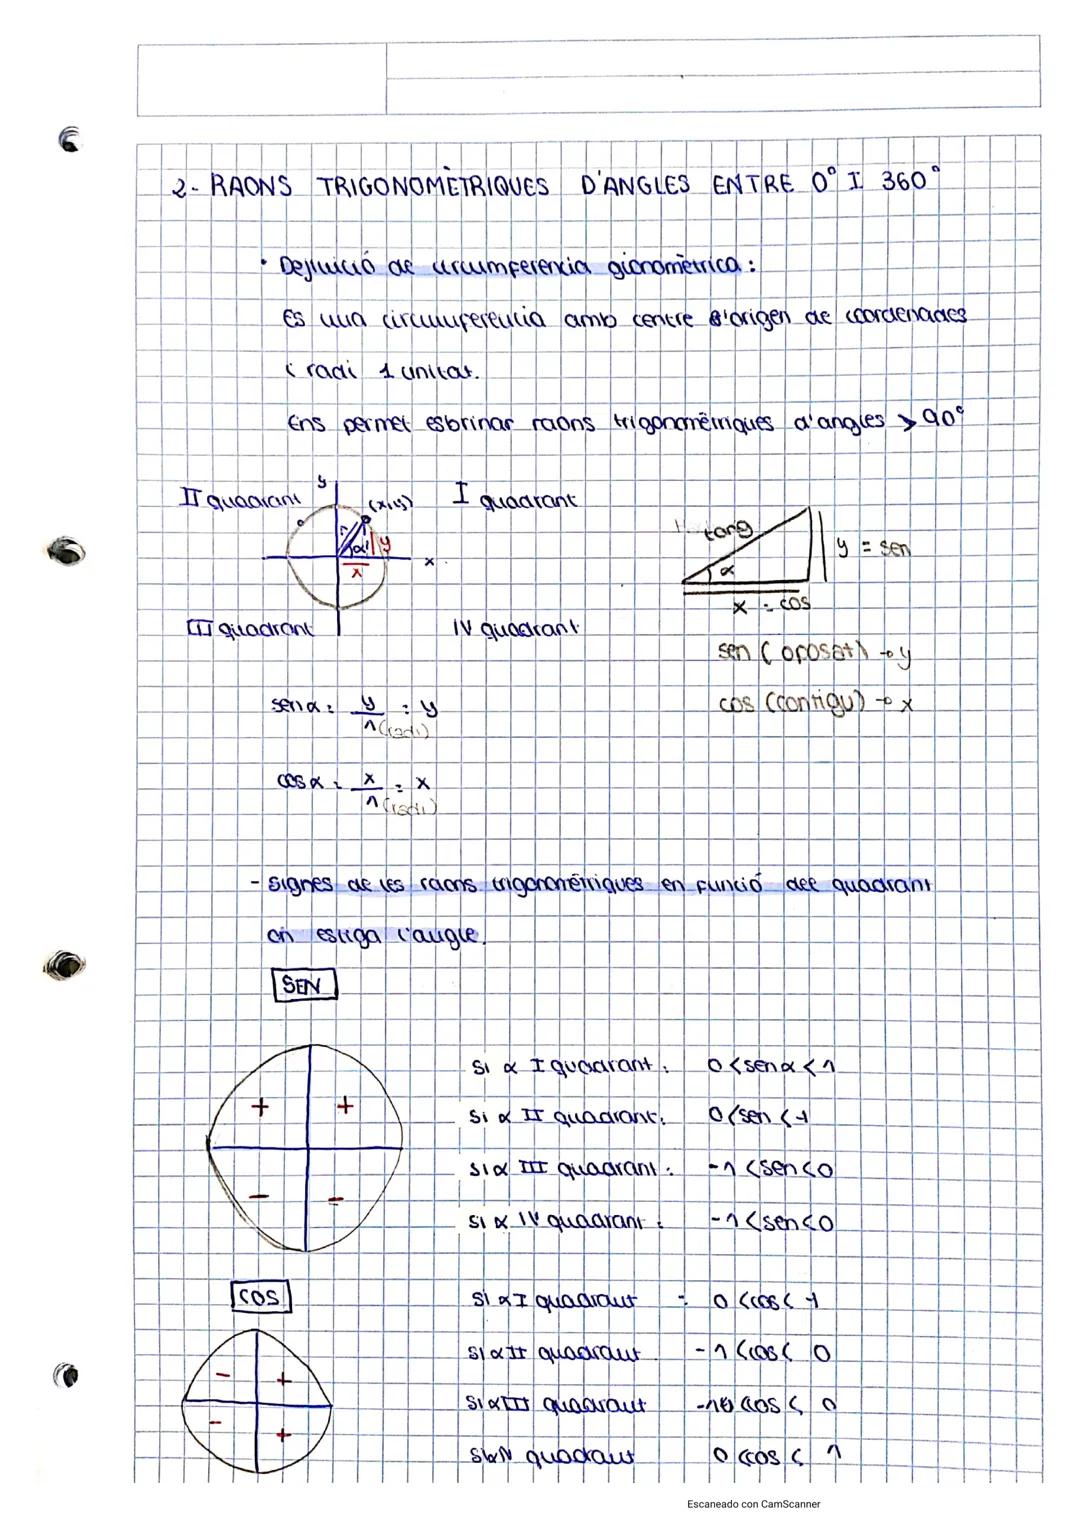 2- RAONS TRIGONOMÈTRIQUES D'ANGLES ENTRE 0° I 360°
· Definició de circumferència gionomètrica:
És una circumferència amb centre l'origen de coordenades
i radi 1 unitat.
Ens permet esbrinar raons trigonomètriques d'angles > 90°
II quadrant
y
(x,y)
I quadrant
1
α
y
x
x
tang
α
y = sen
x = cos
III quadrant
IV quadrant
sen (oposat) → y
cos (contigu) → x
sen α = y/1 (radi) = y
cos α = x/1 (radi) = x
- Signes de les raons trigonomètriques en funció del quadrant
on estiga l'angle.
SEN
+ +
- -
Si α I quadrant: 0 < sen α < 1
Si α II quadrant: 0 < sen < 1
Si α III quadrant: -1 < sen < 0
Si α IV quadrant: -1 < sen < 0
COS
- +
- +
Si α I quadrant = 0 < cos < 1
Si α II quadrant -1 < cos < 0
Si α III quadrant -1 < cos < 0
Si α IV quadrant 0 < cos < 1
Escaneado con CamScanner